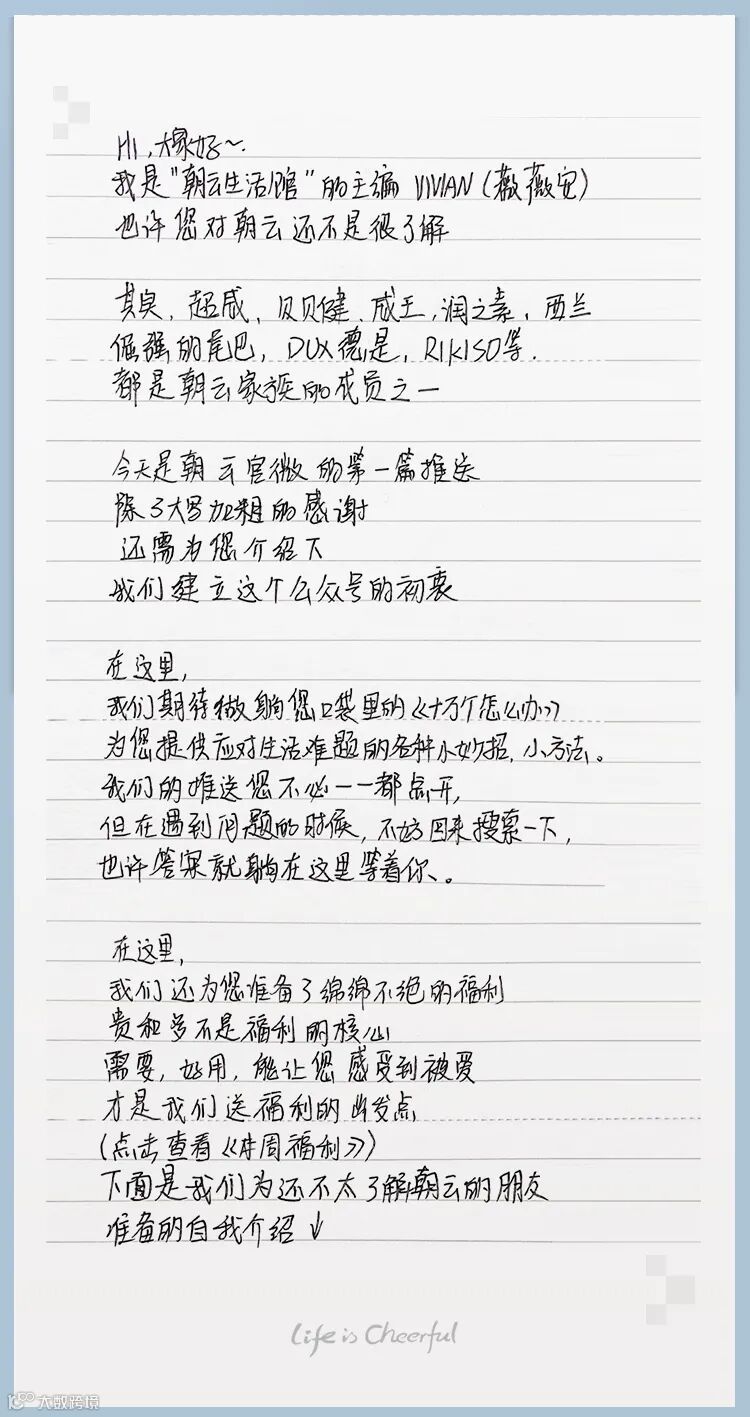 Hi,大家好~.
我是"朝云生活馆"的主编 VIVIAN(薇薇安)
也许您对朝云还不是很了解
其实,超威、贝贝健、威王,润之素,西兰
倔强的尾巴,DUX德是,RIKISO等.
都是朝云家族的成员之一
今天是朝云官微的第一篇推送
除了大号加粗的感谢
还需为您介绍下
我们建立这个公众号的初衷
在这里,
我们期待做躺您口袋里的《十万个怎么办》
为您提供应对生活难题的各种小妙招,小方法。
我们的推送您不必一一都点开,
但在遇到问题的时候,不妨回来搜索一下,
也许答案就躺在这里等着你、。
在这里,
我们还为您准备了绵绵不绝的福利
贵和多不是福利的核心
需要,好用,能让您感受到被爱
才是我们送福利的出发点
(点击查看《本周福利》)
下面是我们为还不太了解朝云的朋友
准备的自我介绍↓
Life is Cheerful
大数跨境